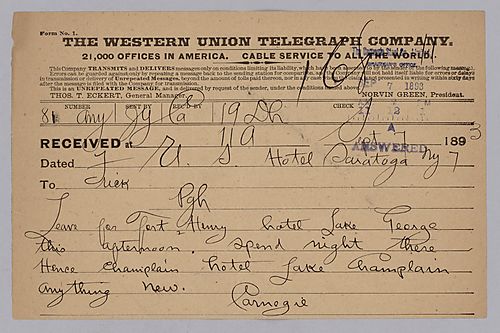 Form No. 1.
THE WESTERN UNION TELEGRAPH COMPANY.
21,000 OFFICES IN AMERICA. CABLE SERVICE TO ALL THE WORLD.
This Company TRANSMITS and DELIVERS messages only on conditions limiting its liability, which have been assented to by the sender of the following message.
Errors can be guarded against only by repeating a message back to the sending station for comparison, and the Company will not hold itself liable for errors or delays
in transmission or delivery of Unrepeated Messages, beyond the amount of tolls paid thereon, nor in any case where the claim is not presented in writing within sixty days
after the message is filed with the Company for transmission.
This is an UNREPEATED MESSAGE, and is delivered by request of the sender, under the conditions named above.
THOS. T. ECKERT, General Manager. NORVIN GREEN, President.
7 1893
NUMBER SENT BY REC'D BY CHECK
81 19 Dh
RECEIVED at 11a Sept 7 1893
ANSWERED
Dated Hotel Saratoga NY 7
To Frick
Pgh
Leave for Fort Henry hotel Lake George
this afternoon. Spend night there
Hence Champlain hotel Lake Champlain
anything new.
Carnegie